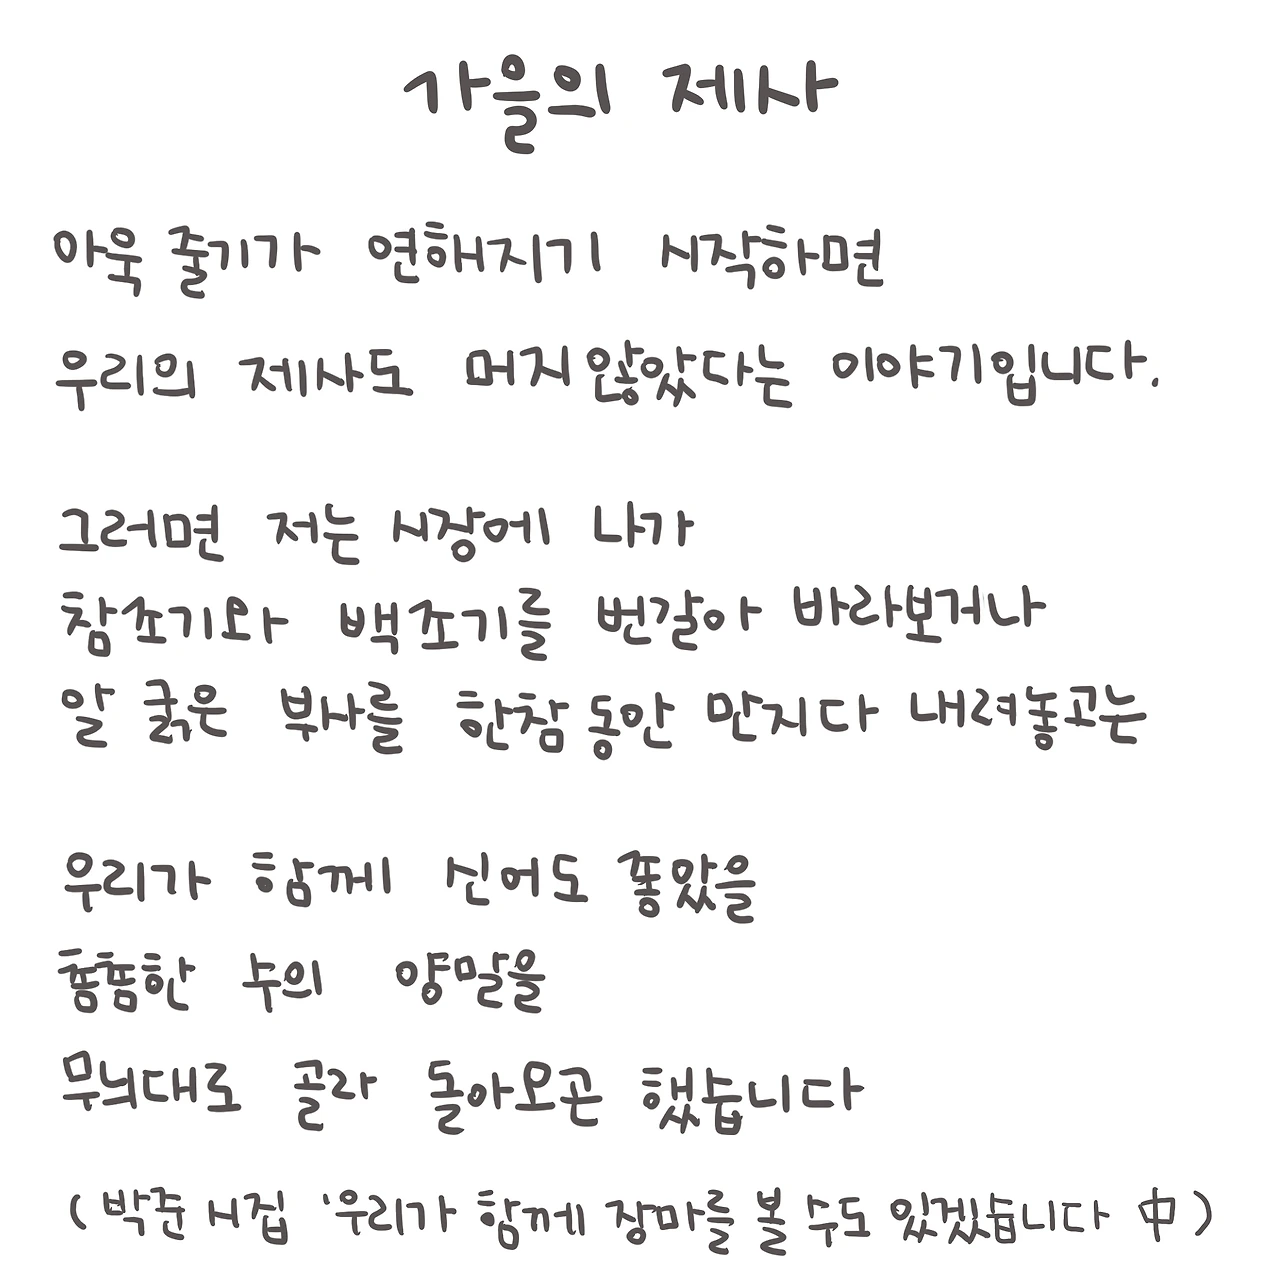 가을의 제사
아욱 줄기가 연해지기 시작하면
우리의 제사도 머지않았다는 이야기입니다.
그러면 저는 시장에 나가
참조기와 백조기를 번갈아 바라보거나
알 굵은 부사를 한참 동안 만지다 내려놓고는
우리가 함께 신어도 좋았을
톰톰한 수의 양말을
무늬대로 골라 돌아오곤 했습니다
(박준 시집 '우리가 함께 장마를 볼 수도 있겠습니다 中)